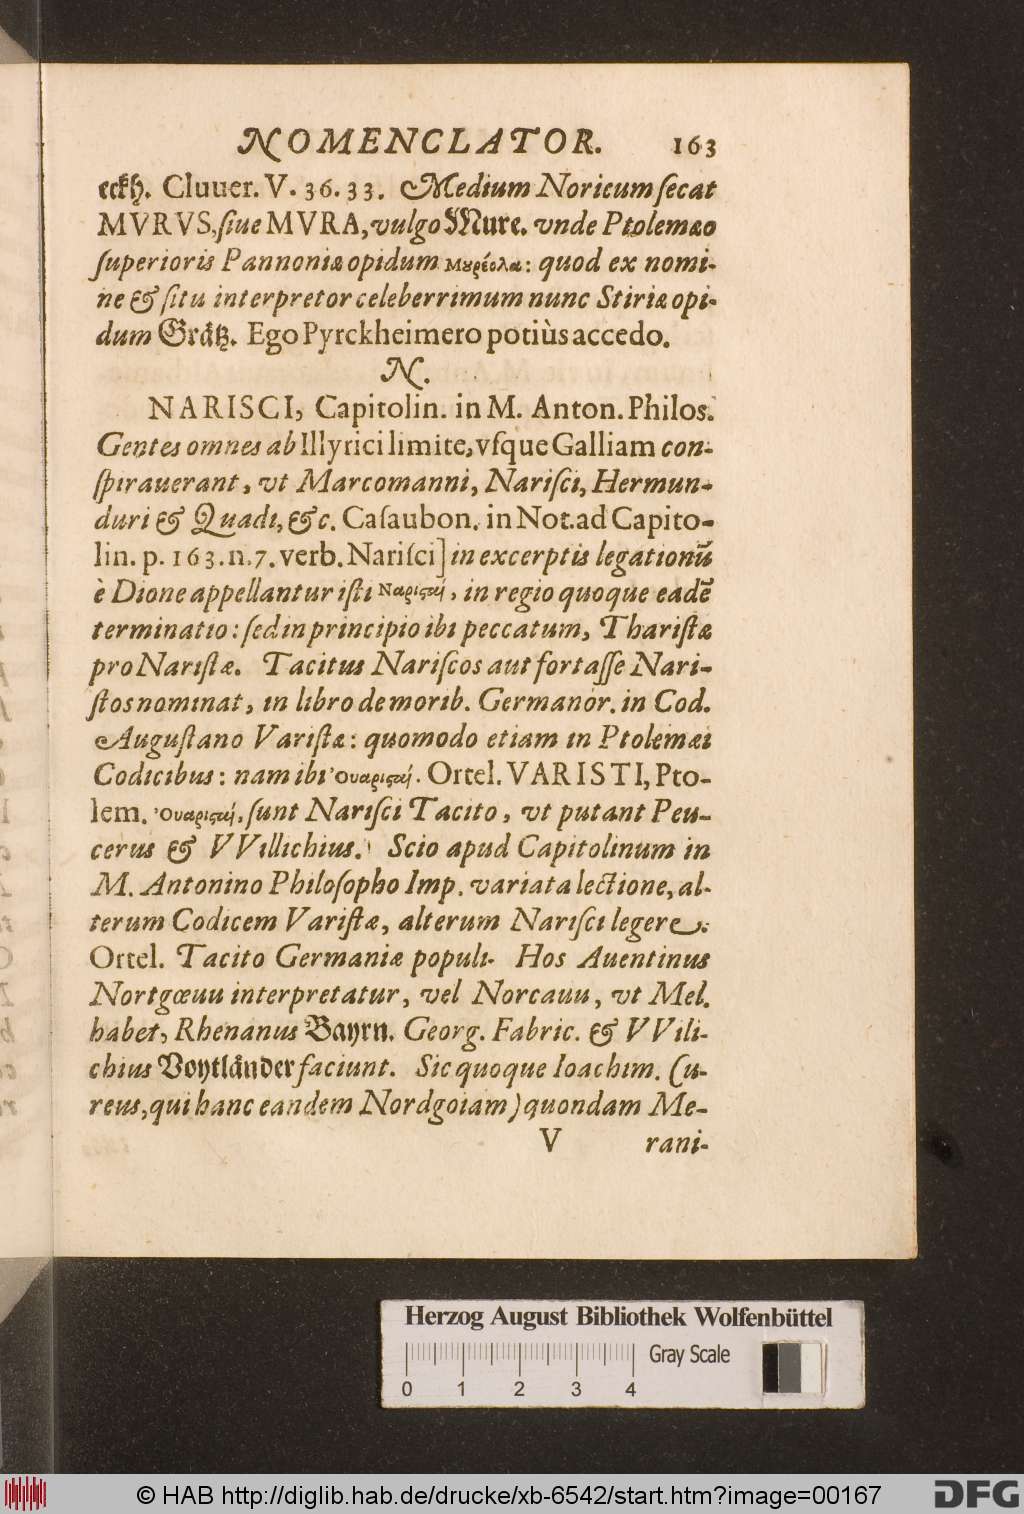 NOMENCLATOR. 163
eckh. Cluuer. V. 36. 33. Medium Noricum ſecat
MVRVS, ſiue MVRA, vulgo Mure. vnde Ptolemæo
ſuperioris Pannoniæ opidum Μουρέολα: quod ex nomi-
ne & ſitu interpretor celeberrimum nunc Stiriæ opi-
dum Grätz. Ego Pyrckheimero potiùs accedo.
N.
NARISCI, Capitolin. in M. Anton. Philos.
Gentes omnes ab Illyrici limite, vſque Galliam con-
ſpirauerant, vt Marcomanni, Nariſci, Hermun-
duri & Quadi, &c. Caſaubon. in Not. ad Capito-
lin. p. 163. n. 7. verb. Nariſci] in excerptis legationū
è Dione appellantur iſti Ναριςαί, in regio quoque eadē
terminatio: ſed in principio ibi peccatum, Thariſtæ
pro Nariſtæ. Tacitus Nariſcos aut fortaſſe Nari-
ſtos nominat, in libro de morib. Germanor. in Cod.
Auguſtano Variſtæ: quomodo etiam in Ptolemæi
Codicibus: nam ibi Ὀυαριςαί. Ortel. VARISTI, Pto-
lem. Ὀυαριςαί, ſunt Nariſci Tacito, vt putant Peu-
cerus & VVillichius. Scio apud Capitolinum in
M. Antonino Philoſopho Imp. variata lectione, al-
terum Codicem Variſtæ, alterum Nariſci legere.
Ortel. Tacito Germaniæ populi. Hos Auentinus
Nortgœuu interpretatur, vel Norcauu, vt Mel.
habet, Rhenanus Bayrn. Georg. Fabric. & VVili-
chius Voytländer faciunt. Sic quoque Ioachim. Cu-
reus, qui hanc eandem Nordgoiam) quondam Me-
V rani-
Herzog August Bibliothek Wolfenbüttel
Gray Scale
0 1 2 3 4
© HAB http://diglib.hab.de/drucke/xb-6542/start.htm?image=00167 DFG